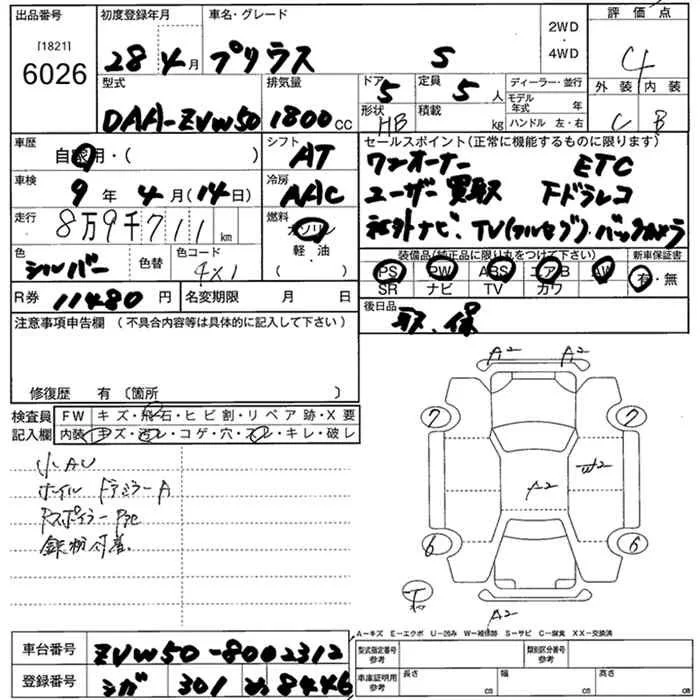 出品番号 初度登録年月 車名・グレード 評価点
[1821]
6026 28年4月 プリウス S 2WD・4WD 4
型式 排気量 ドア 5 定員 5人 ディーラー・並行 外装 内装
DAA-ZVW50 1800cc 形状 HB 積載 kg モデル年式 年 ハンドル 左・右 C B
車歴 自家用・( ) シフト AT セールスポイント(正常に機能するものに限ります)
ワンオーナー ETC
車検 9年4月(14日) 冷房 AAC ユーザー買取 Fドラレコ
走行 8万9千711km 燃料 ガソリン 軽油・( ) 社外ナビ、TV(フルセグ)、バックカメラ
色 シルバー 色替 色コード 4X1 装備品(純正品に限り丸をつけて下さい) 新車保証書
PS PW ABS エアB AW 有・無
SR ナビ TV カワ
R券 11480円 名変期限 月 日 後日品
取、保
注意事項申告欄(不具合内容等は具体的に記入して下さい)
修復歴 有(箇所 )
検査員 FW キズ・飛石・ヒビ割・リペア跡・X要
記入欄 内装 キズ・汚レ・コゲ・穴・スレ・キレ・破レ
A2 A2
7 7
小AU
ホイル ドアミラーA
鉄粉付着
W2
A2
6 6
A2
A-キズ E-エクボ U-凹み W-補修跡 S-サビ C-腐食 XX-交換済
車台番号 ZVW50-8002312 型式指定番号 参考 類別区分番号 参考
登録番号 シガ 301 め 8446 車庫証明用 参考 長さ cm 幅 cm 高さ cm